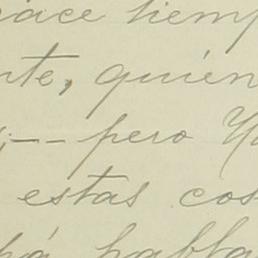 hace tiemp
nte, quién
;-- pero Yo
estas cos
habla